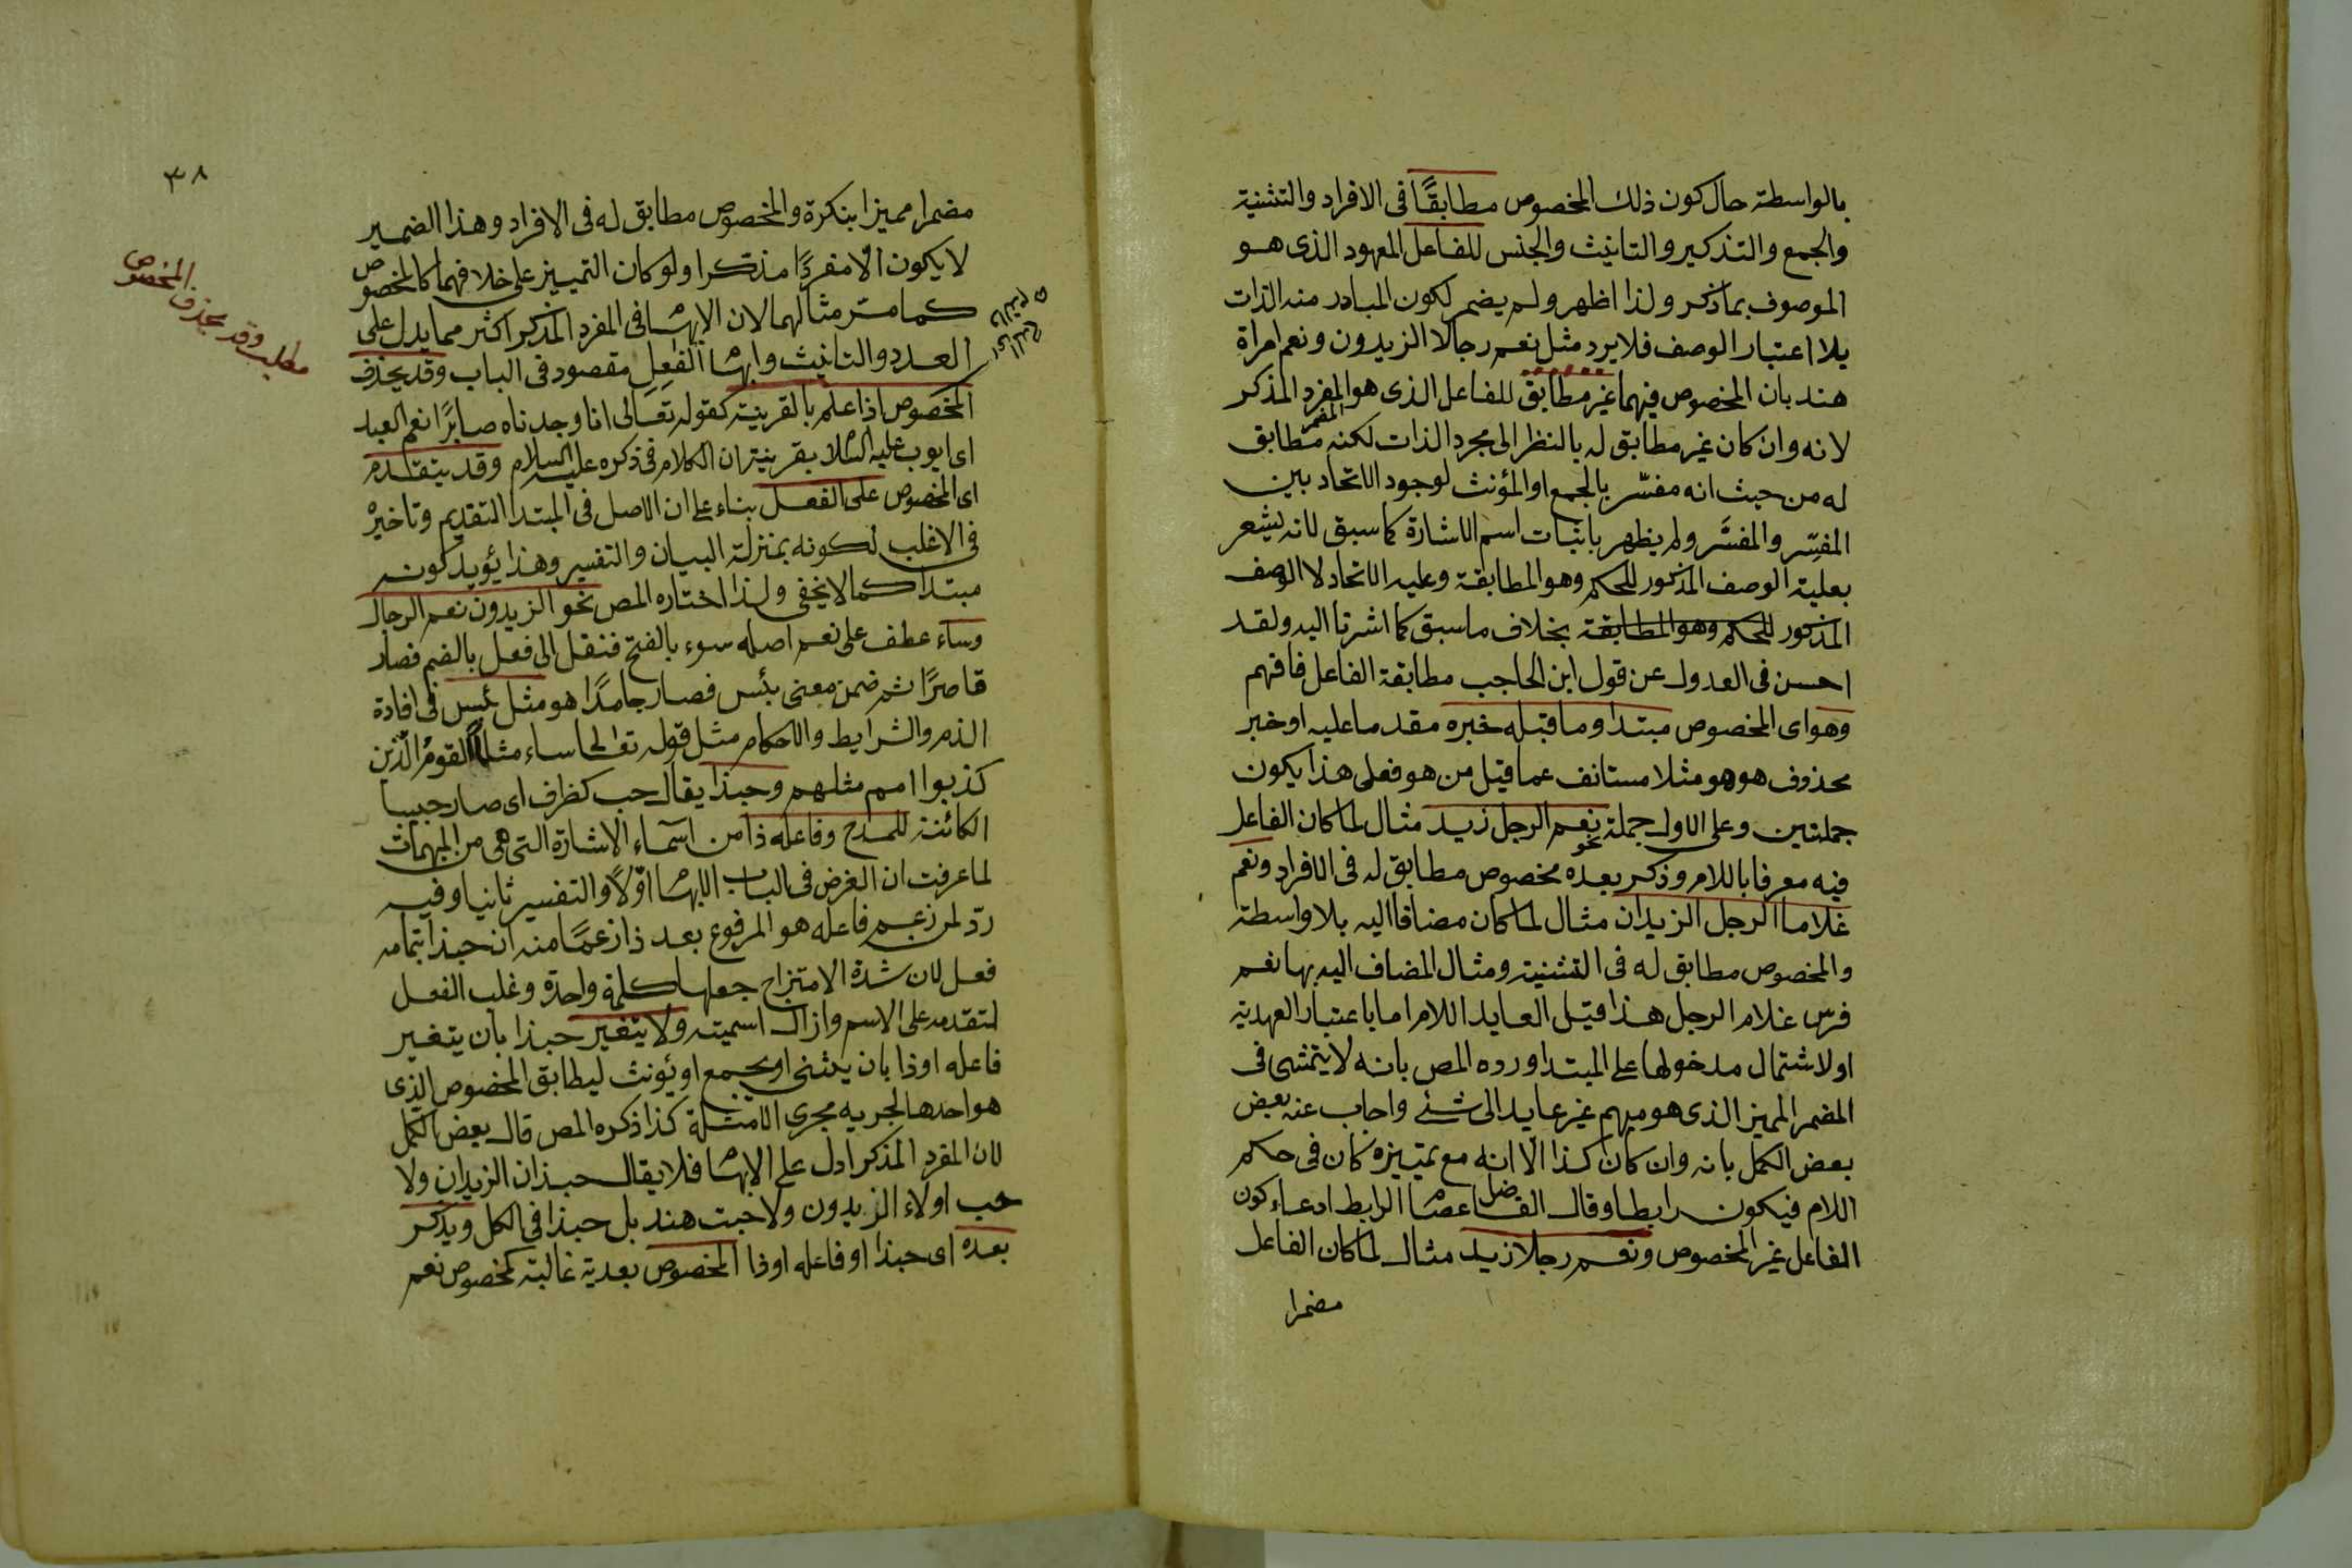 بالواسطة حال كون ذلك المخصوص مطابقًا فى الافراد والتثنية
والجمع والتذكير والتانيث والجنس للفاعل المعهود الذى هو
الموصوف بما ذكر ولذا اظهر ولم يضمر لكون المبادر منه الذات
بلا اعتبار الوصف فلا يرد مثل نعم رجالا الزيدون ونعم امراة
هند بان المخصوص فيهما غير مطابق للفاعل الذى هو المفرد المذكر
لانه وان كان غير مطابق له بالنظر الى مجرد الذات لكنه مطابق
له من حيث انه مفسّر بالجمع او المؤنث لوجود الاتحاد بين
المفسِّر والمفسَّر ولم يظهر باثبات اسم الاشارة كما سبق لانه يشعر
بعلية الوصف المذكور للحكم وهو المطابقة وعليه الاتحاد لا الوصف
المذكور للحكم وهو المطابقة بخلاف ما سبق كما اشرنا اليه ولقد
احسن فى العدول عن قول ابن الحاجب مطابقة الفاعل فافهم
وهو اى المخصوص مبتدا وما قبله خبره مقدما عليه او خبر
محذوف هو هو مثلا مستانف عما قيل من هو فعلى هذا يكون
جملتين وعلى الاول جملة نحو نعم الرجل زيد مثال لما كان الفاعل
فيه معرفا باللام وذكر بعده مخصوص مطابق له فى الافراد ونعم
غلاما الرجل الزيدان مثال لما كان مضافا اليه بلا واسطة
والمخصوص مطابق له فى التثنية ومثال المضاف اليه بها نعم
فرس غلام الرجل هذا قيل العايد اللام اما باعتبار العهدية
او لاشتمال مدخولها على المبتدا ورده المص بانه لا يتمشى فى
المضمر المميز الذى هو مبهم غير عايد الى شئ واجاب عنه بعض
بعض الكمل بانه وان كان كذا الّا انه مع تمييزه كان فى حكم
اللام فيكون رابطا وقال الفاضل عصا الرابط ادعاء كون
الفاعل غير المخصوص ونعم رجلا زيد مثال لما كان الفاعل
مضمرا
٣٨
مضمرا مميزا بنكرة والمخصوص مطابق له فى الافراد وهذا الضمير
لا يكون الّا مفردًا مذكرا ولو كان التمييز على خلافهما كالمخصوص
كما مر مثالهما لان الابها فى المفرد المذكر اكثر مما يدل على
العدد والتانيث وابها الفعل مقصود فى الباب وقد يحذف
المخصوص اذا علم بالقرينة كقوله تعالى انا وجدناه صابرًا نعم العبد
اى ايوب عليه السلا بقرينة ان الكلام فى ذكره عليه السلام وقد يتقدم
اى المخصوص على الفعل بناء على ان الاصل فى المبتدا التقديم وتاخيره
فى الاغلب لكونه بمنزلة البيان والتفسير وهذا يؤيد كونه
مبتدا كما لا يخفى ولذا اختاره المص نحو الزيدون نعم الرجال
وساء عطف على نعم اصله سوء بالفتح فنقل الى فعل بالضم فصار
قاصرًا ثم ضمن معنى بئس فصار جامدًا هو مثل بئس فى افادة
الذم والشرايط والاحكام مثل قوله تعالى ساء مثلا القوم الّذين
كذبوا امم مثلهم وحبذا يقال حب كظرف اى صار حبيبا
الكائنة للمدح وفاعله ذا من اسماء الاشارة التى هى من المبهمات
لما عرفت ان الغرض فى الباب الابها اوّلًا والتفسير ثانيا وفيه
ردّ لمن زعم فاعله هو المرفوع بعد ذا زعمًا منه ان حبذا بتمامه
فعل لان شدة الامتزاج جعلها كلمة واحدة وغلب الفعل
لتقدمه على الاسم وازال اسميته ولا يتغير حبذا بان يتغير
فاعله او ذا بان يثنى او يجمع او يؤنث ليطابق المخصوص الذى
هو احدها لجريه مجرى الامثلة كذا ذكره المص قال بعض الكمل
لان المفرد المذكر ادل على الابها فلا يقال حبذان الزيدان ولا
حب اولاء الزيدون ولا حبت هند بل حبذا فى الكل ويذكر
بعده اى حبذا او فاعله او ذا المخصوص بعدية غالبة كمخصوص نعم
مطلب وقد يحذف المخصوص